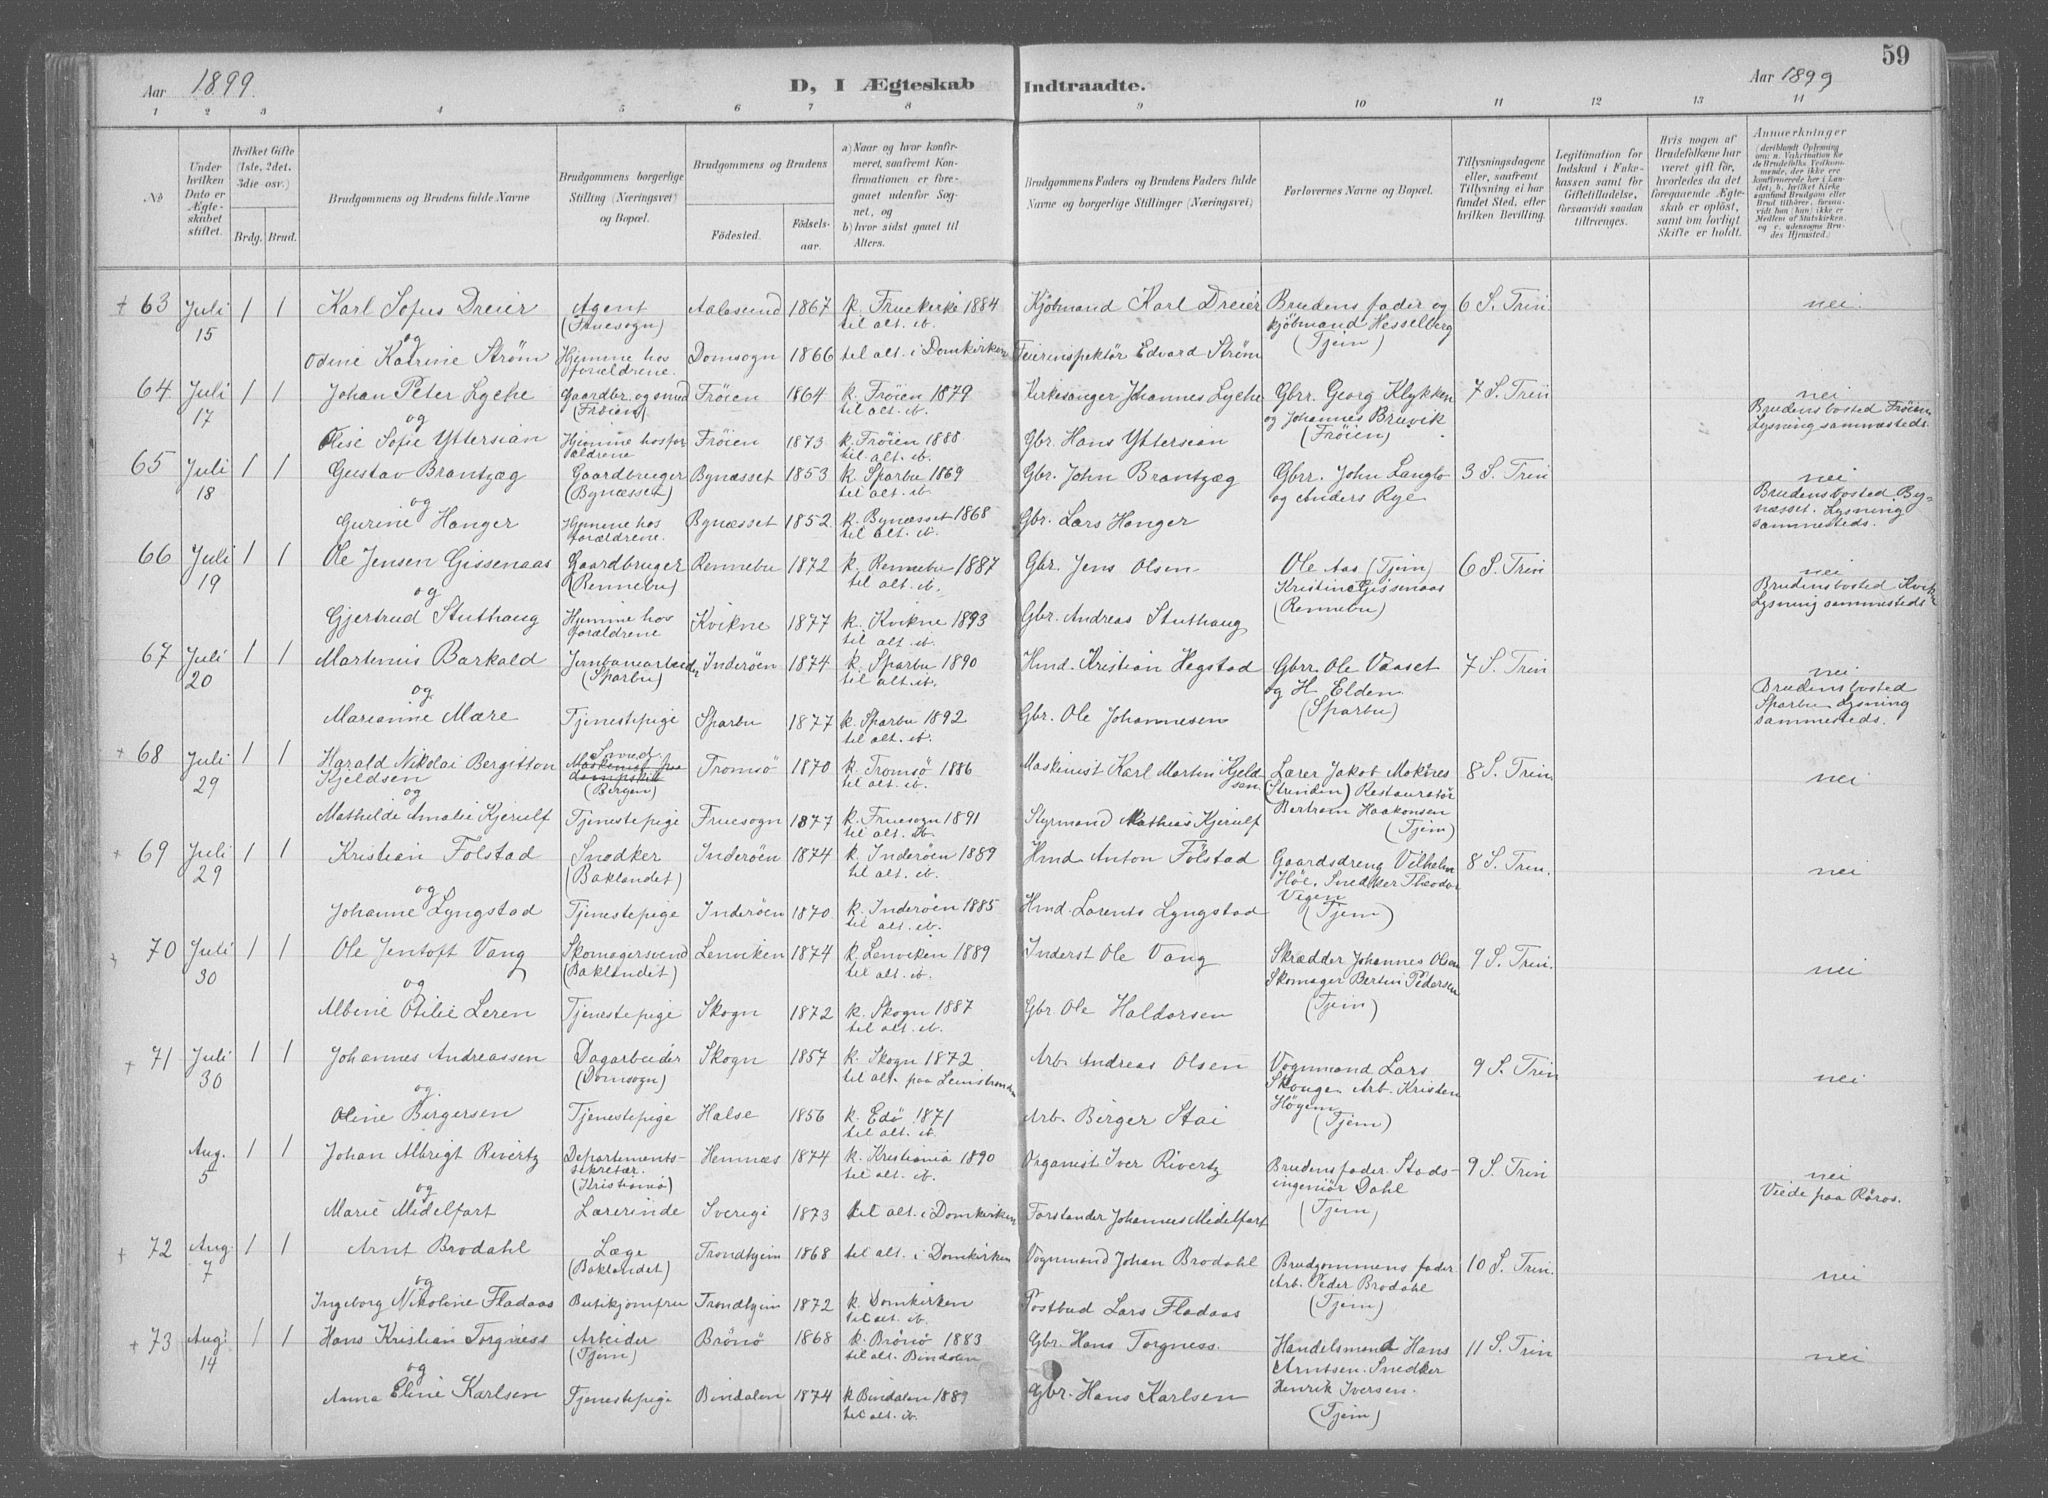 59
Aar 1899.
D, I Ægteskab Indtraadte.
Aar 1899
1 2 3 4 5 6 7 8 9 10 11 12 13 14
No
Under hvilken Dato er Ægteskabet stiftet.
Hvilket Gifte (1ste, 2det, 3die osv.)
Brdg. Brud.
Brudgommens og Brudens fulde Navne
Brudgommens borgerlige Stilling (Næringsvei) og Bopæl.
Brudgommens og Brudens
Fødested.
Fødselsaar.
a) Naar og hvor konfirmeret, saafremt Konfirmationen er foregaaet udenfor Sognet, og
b) hvor sidst gaaet til Alters.
Brudgommens Faders og Brudens Faders fulde Navne og borgerlige Stillinger (Næringsvei)
Forlovernes Navne og Bopæl.
Tillysningsdagene eller, saafremt Tillysning ei har fundet Sted, efter hvilken Bevilling.
Legitimation for Indskud i Enkekassen samt for Giftetilladelse, forsaavidt saadan tiltrænges.
Hvis nogen af Brudefolkene har været gift før, hvorledes da det foregaaende Ægteskab er opløst, samt om lovligt Skifte er holdt.
Anmerkninger
63 Juli 15 1 1 Karl Sofus Dreier Agent (Fruesogn) Aalesund 1867 k. Fruekirke 1884 til alt. ib. Kjøbmand Karl Dreier Brudens fader og kjøbmand Hesselberg (Tjem) 6 S. Trin nei.
og
Odine Katrine Strøm Hjemme hos forældrene. Domsogn 1866 til alt. i Domkirken Feierinspektør Edvard Strøm
64 Juli 17 1 1 Johan Peter Lyche Gaardbr. og smed (Frøien) Frøien 1864 k. Frøien 1879 til alt. ib. Kirkesanger Johannes Lyche Gbrr. Georg Klykken og Johannes Bruvik (Frøien) 7 S. Trin nei Brudens bosted Frøien Lysning sammesteds.
og
Elise Sofie Yttersian Hjemme hos forældrene Frøien 1873 k. Frøien 1888 til alt. ib. Gbr. Hans Yttersian
65 Juli 18 1 1 Gustav Brantzæg Gaardbruger (Bynæsset) Bynæsset 1853 k. Sparbu 1869 til alt. ib. Gbr. John Brantzæg Gbrr. John Langlo og Anders Rye 3 S. Trin nei Brudens bosted Bynæsset. Lysning sammesteds.
og
Gurine Hanger Hjemme hos forældrene. Bynæsset 1852 k. Bynæsset 1868 til alt. ib. Gbr. Lars Hanger
66 Juli 19 1 1 Ole Jensen Gissenaas Gaardbruger (Rennebu) Rennebu 1872 k. Rennebu 1887 til alt. ib. Gbr. Jens Olsen Ole Aas (Tjem) Kristine Gissenaas (Rennebu) 6 S. Trin nei Brudens bosted Kvikne Lysning sammesteds
og
Gjertrud Stuthaug Hjemme hos forældrene Kvikne 1877 k. Kvikne 1893 til alt. ib. Gbr. Andreas Stuthaug
67 Juli 20 1 1 Martenius Barkald Jernbanearbeider (Sparbu) Inderøen 1874 k. Sparbu 1890 til alt. ib. Hmd. Kristian Hegstad Gbrr. Ole Vaaset og H. Elden (Sparbu) 7 S. Trin nei Brudens bosted Sparbu Lysning sammesteds.
og
Marianne Mære Tjenestepige Sparbu 1877 k. Sparbu 1892 til alt. ib. Gbr. Ole Johannesen
68 Juli 29 1 1 Harald Nikolai Bergitton Kjeldsen Maskinist paa dampskib (Bergen) Tromsø 1870 k. Tromsø 1886 til alt. ib. Maskinist Karl Martin Kjeldsen Lærer Jakob Moknes (Strinden) Restauratør Bertram Haakonsen (Tjem) 8 S. Trin nei
og
Mathilde Amalie Kjerulf Tjenestepige Fruesogn 1877 k. Fruesogn 1891 til alt. ib. Styrmand Mathias Kjerulf
69 Juli 29 1 1 Kristian Følstad Snedker (Baklandet) Inderøen 1874 k. Inderøen 1889 til alt. ib. Hmd. Anton Følstad Gaardsdreng Vilhelm Høe. Snedker Theodor Vigen (Tjem) 8 S. Trin. nei
og
Johanne Lyngstad Tjenestepige Inderøen 1870 k. Inderøen 1885 til alt. ib. Hmd. Lorents Lyngstad
70 Juli 30 1 1 Ole Jentoft Vang Skomagersvend (Baklandet) Lenviken 1874 k. Lenviken 1889 til alt. ib. Inderst Ole Vang Skrædder Johannes Olsen Skomager Bertin Pedersen (Tjem) 9 S. Trin. nei
og
Albine Otilie Leren Tjenestepige Skogn 1872 k. Skogn 1887 til alt. ib. Gbr. Ole Haldorsen
71 Juli 30 1 1 Johannes Andreassen Dagarbeider (Domsogn) Skogn 1857 k. Skogn 1872 til alt. paa Leinstranden Arb. Andreas Olsen Vognmand Lars Skauge. Arb. Kristen Høyem (Tjem) 9 S. Trin nei
og
Oline Birgersen Tjenestepige Halse 1856 k. Edø 1871 til alt. ib. Arb. Birger Stai
Aug. 5 1 1 Johan Albrigt Rivertz Departementssekretær. (Kristiania) Hemnæs 1874 k. Kristiania 1890 til alt. ib. Organist Iver Rivertz Brudens fader. Stadsingeniør Dahl (Tjem) 9 S. Trin nei Viede paa Røros.
og
Marie Midelfart Lærerinde Sverige 1873 til alt. i Domkirken Forstander Johannes Midelfart
72 Aug 7 1 1 Arnt Brodahl Læge (Baklandet) Trondhjem 1868 til alt. i Domkirken Vognmand Johan Brodahl Brudgommens fader Arb. Peder Brodahl (Tjem) 10 S. Trin. nei
og
Ingeborg Nikoline Fladaas Butikjomfru Trondhjem 1872 k. Domkirken til alt. ib. Postbud Lars Fladaas
73 Aug. 14 1 1 Hans Kristian Torgness Arbeider (Tjem) Brønø 1868 k. Brønø 1883 til alt. Bindalen Gbr. Hans Torgness. Handelsmand Hans Arntsen. Snedker Henrik Iversen. (Tjem) 11 S. Trin nei
og
Anna Eline Karlsen Tjenestepige Bindalen 1874 k Bindalen 1889 til alt. ib. Gbr. Hans Karlsen